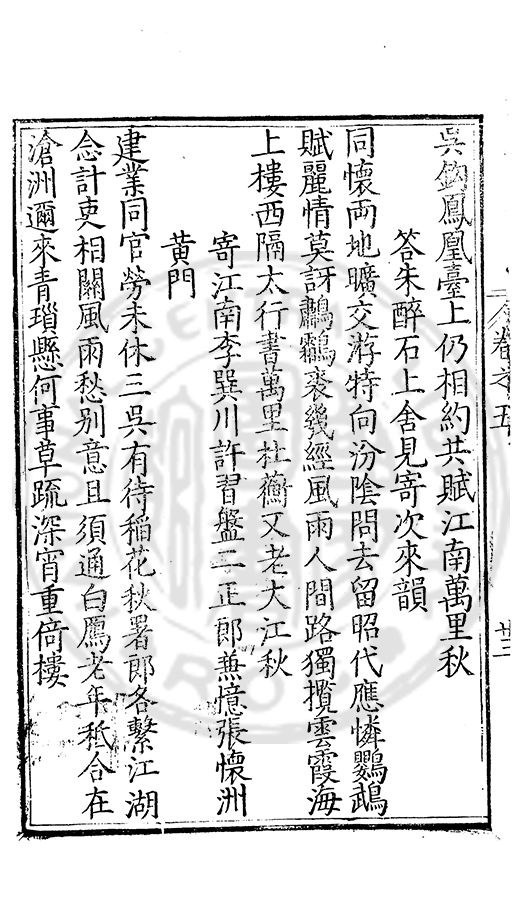 吳鉤鳳凰臺上仍相約共賦江南萬里秋
答朱醉石上舍見寄次來韻
同懷兩地曠交游特向汾陰問去留昭代應憐鸚鵡
賦麗情莫訝鷫鸘裘幾經風雨人間路獨攬雲霞海
上樓西隔太行書萬里杜蘅又老大江秋
寄江南李巽川許習盤二正郎兼憶張懷洲
黃門
建業同官勞未休三吳有待稻花秋署郎各繫江湖
念計吏相關風雨愁别意且須通白鴈老年秪合在
滄洲邇來青瑣懸何事草疏深宵重倚樓
卷之五
廿二